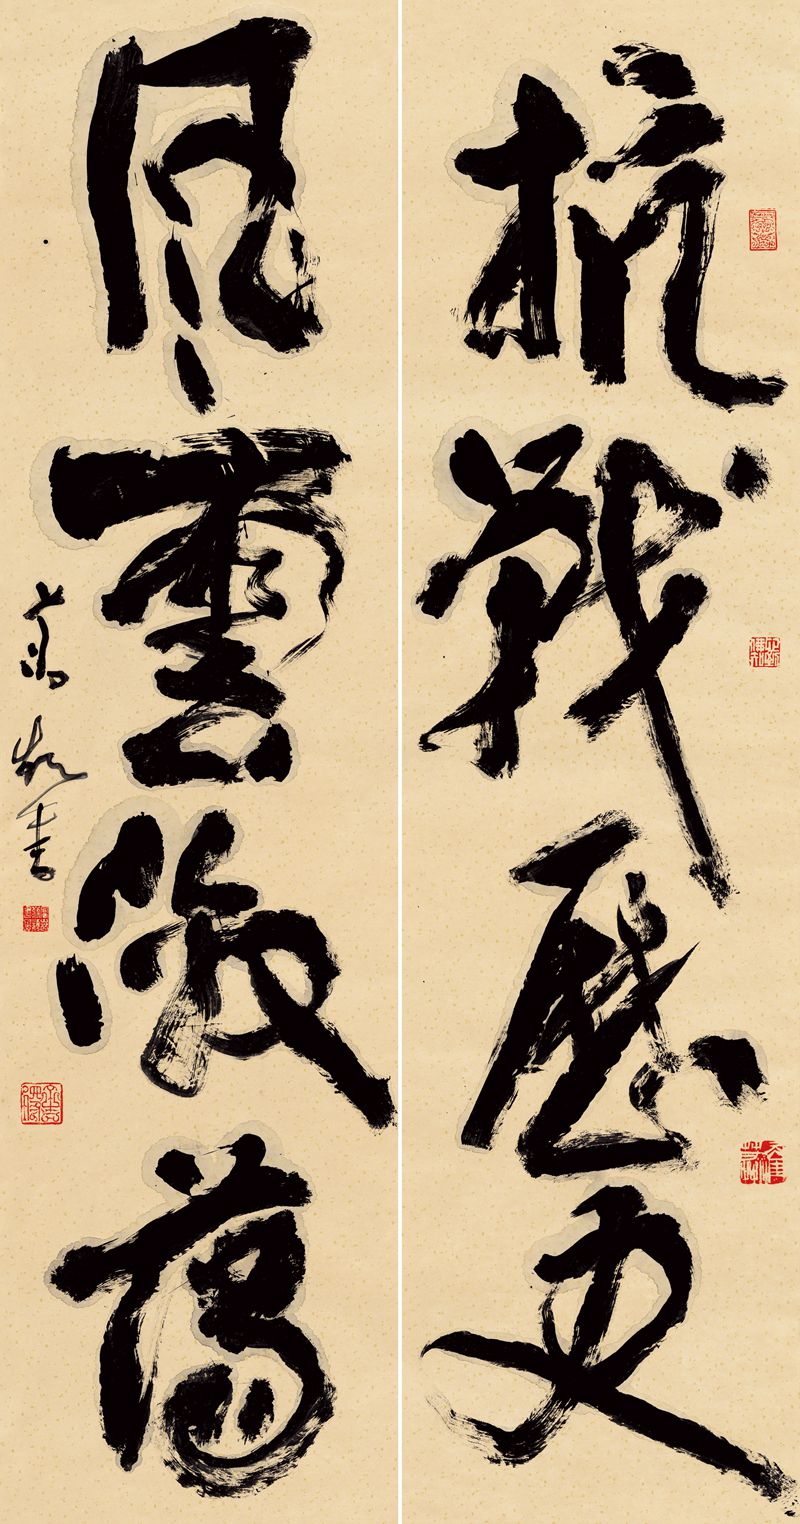 抗戰歷史
風雲激蕩
書